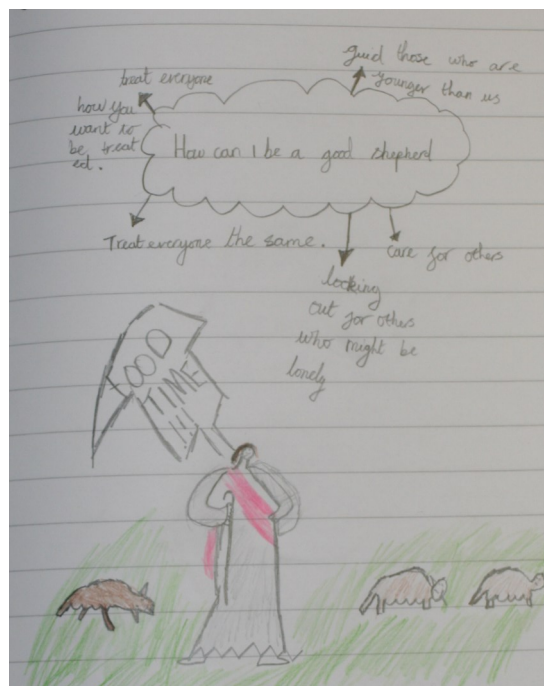 treat everyone
how you
want to
be treat
ed.
guid those who are
younger than us
How can I be a good shepherd
Treat everyone the same.
care for others
looking
out for others
who might be
lonely
FOOD
TIME
!!!